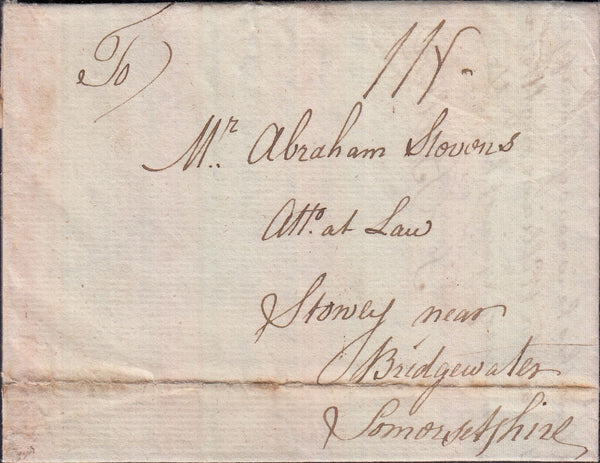 To
Mr. Abraham Stevens
Atto. at Law
Stowey near
Bridgewater
Somersetshire